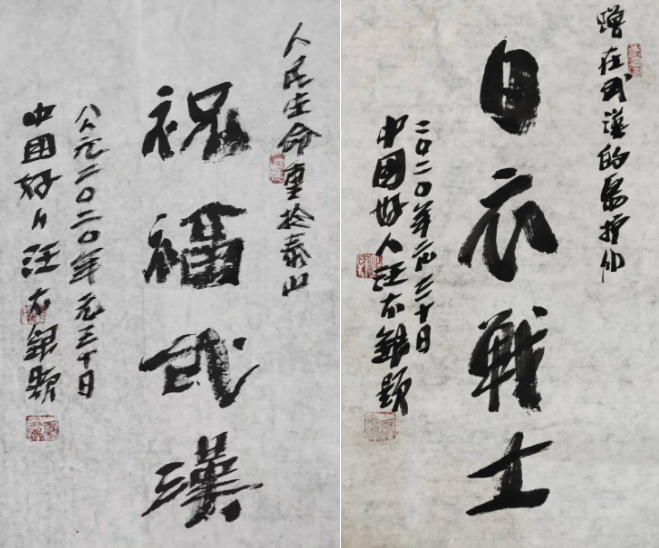 人民生命重於泰山
祝福武漢
公元二〇二〇年元三十日
中國好人汪 題
贈在武漢的醫护们
白衣戰士
二〇二〇年元三十日
中國好人汪 題